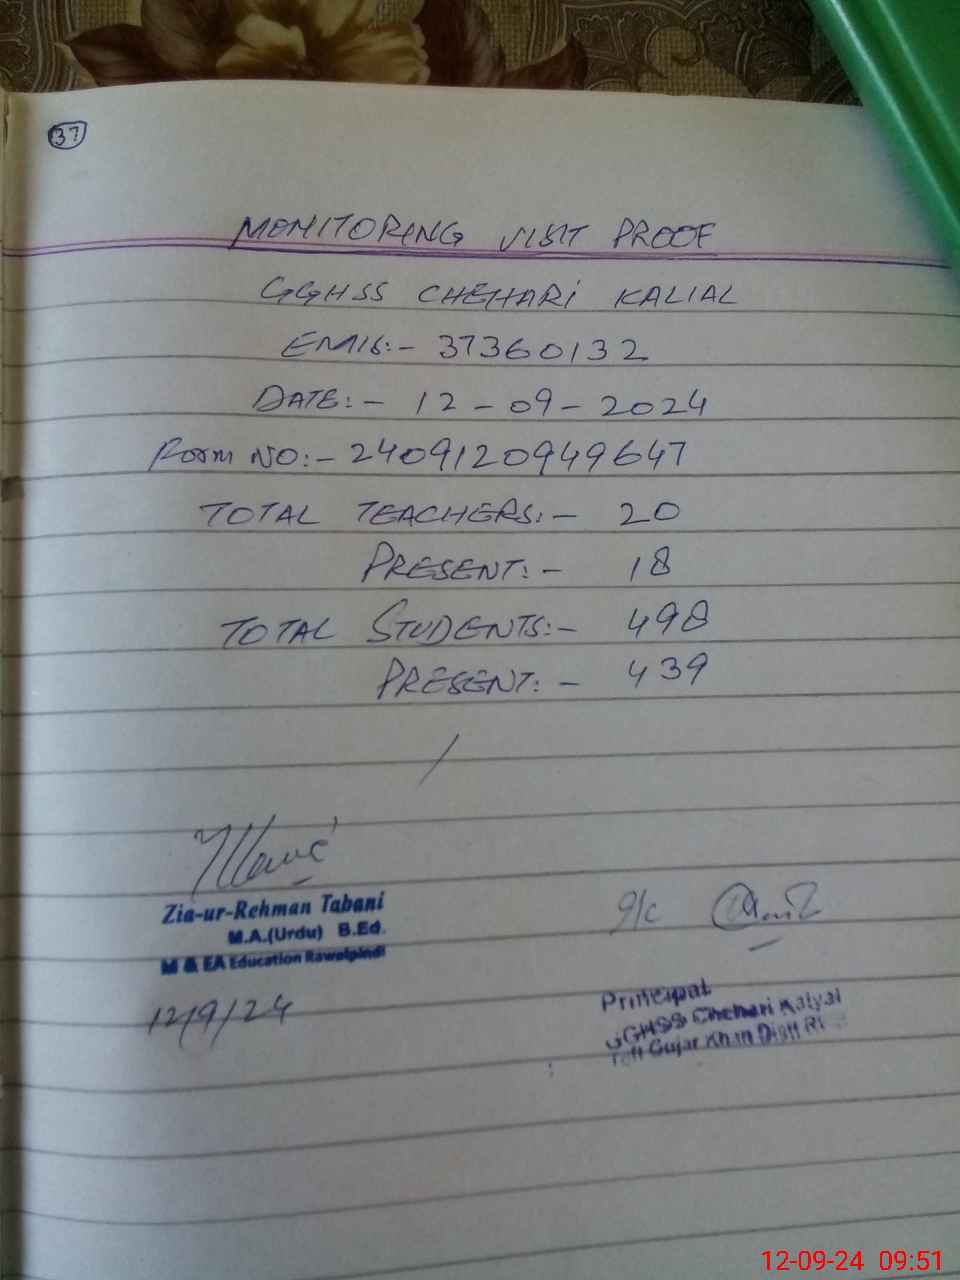 37
MONITORING VISIT PROOF
GGHSS CHEHARI KALIAL
EMIS:- 37360132
DATE:- 12-09-2024
Form NO:- 2409120949647
TOTAL TEACHERS:- 20
PRESENT:- 18
TOTAL STUDENTS:- 498
PRESENT:- 439
Zia-ur-Rehman Tabani
M.A.(Urdu) B.Ed.
M & EA Education Rawalpindi
12/9/24
I/c
Principal
GGHSS Chehari Kalyal
Teh Gujar Khan Distt
12-09-24 09:51